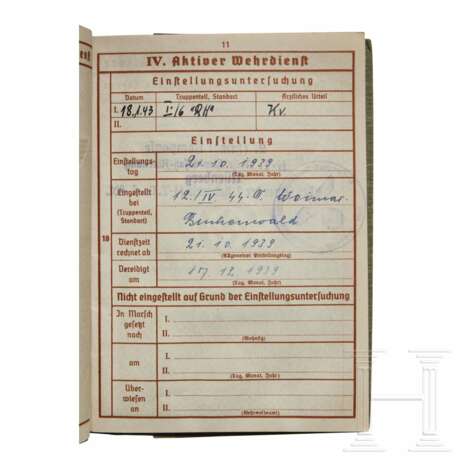 11
IV. Aktiver Wehrdienst
Einstellungsuntersuchung
Datum Truppenteil, Standort Ärztliches Urteil
I. 18.1.43 Kv.
II.
Einstellung
Einstellungs- 21. 10. 1939
tag (Tag, Monat, Jahr)
Eingestellt 12./IV 44-T. Weimar-
bei
(Truppenteil, Buchenwald
Standort)
10
Dienstzeit 21. 10. 1939
rechnet ab
Vereidigt 17. 12. 1939
am (Tag, Monat, Jahr)
Nicht eingestellt auf Grund der Einstellungsuntersuchung
In Marsch I.
gesetzt
nach II.
(Wohnsitz)
am I.
II.
(Tag, Monat, Jahr)
Über- I.
wiesen
an II.
(Wehrmeldeamt)
H